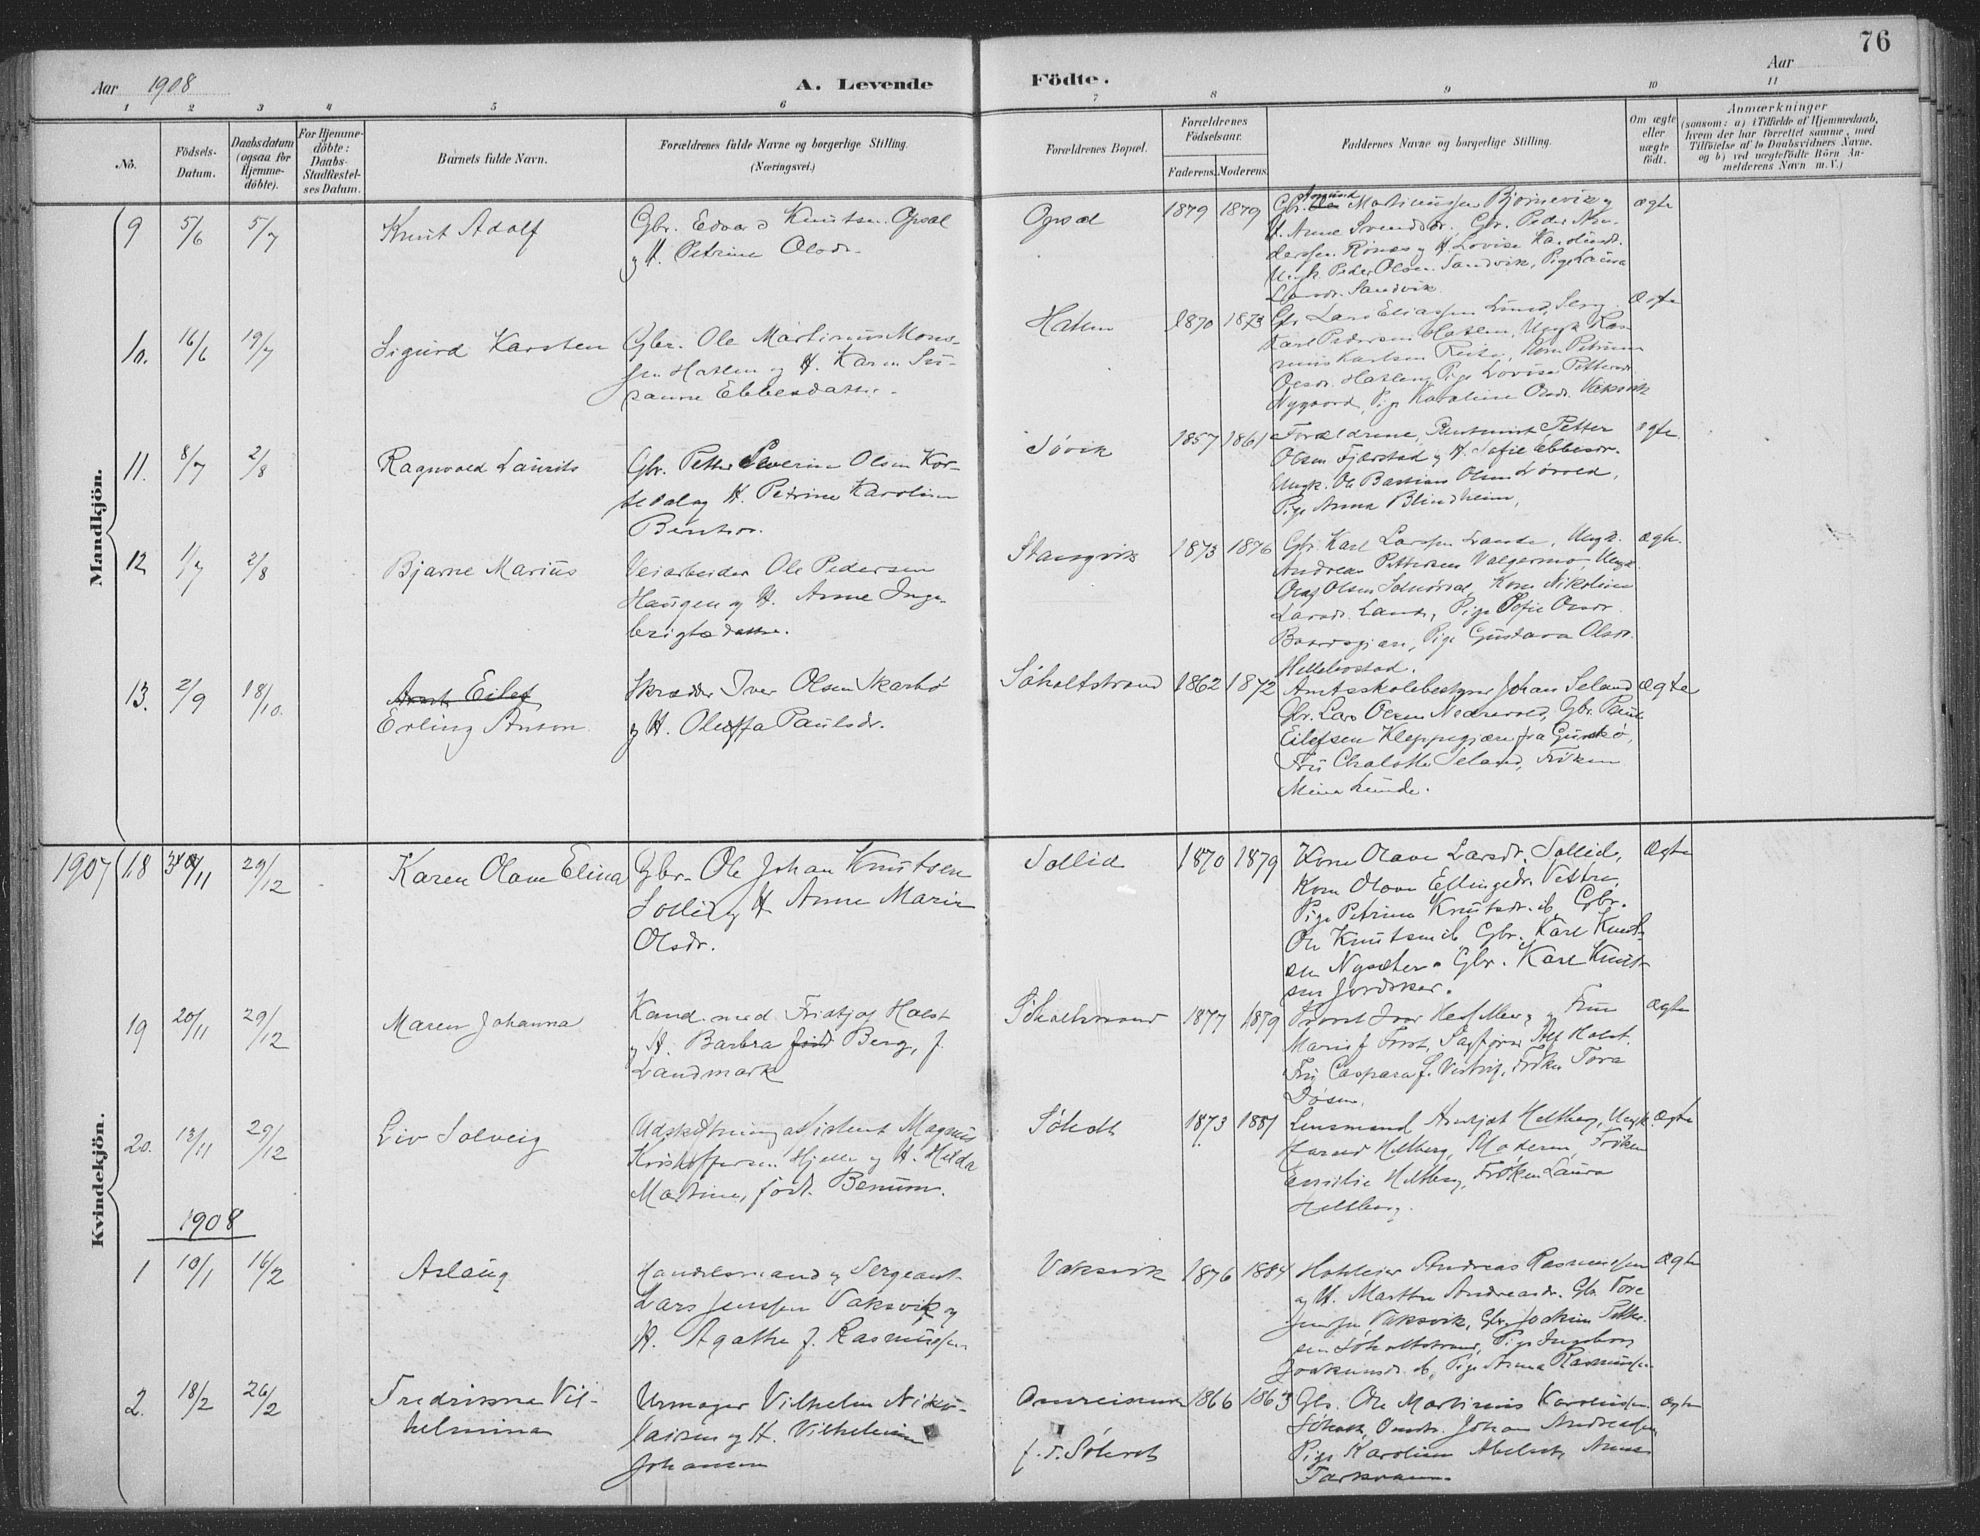 76
Aar 1908
A. Levende
Födte.
Aar
1 2 3 4 5 6 7 8 9 10 11
No.
Födsels-
Datum.
Daabsdatum
(ogsaa for
Hjemme-
döbte).
For Hjemme-
döbte:
Daabs-
Stadfæstel-
ses Datum.
Barnets fulde Navn.
Forældrenes fulde Navne og borgerlige Stilling.
(Næringsvei.)
Forældrenes Bopæl.
Forældrenes
Födselsaar.
Faderens. Moderens.
Faddernes Navne og borgerlige Stilling.
Om ægte
eller
uægte
födt.
Anmærkninger
(saasom: a) i Tilfælde af Hjemmedaab,
hvem der har forrettet samme, med
Tilföielse af to Daabsvidners Navne.
og b) ved uægtefödte Börn An-
melderens Navn m.V.)
Mandkjön.
9 5/6 5/7 Knut Adolf
Gbr. Edvard Knutsen Opsal
og H. Petrine Olsdr.
Opsal 1879 1879
Gbr. Amund Martinussen Bjørnevik og
H. Anne Svendsdr. Gbr. Peder An-
derssen Rønes og H. Lovise Karolusdr.
Ungk. Peder Olsen Sandvik, Pige Laura
Larsdr. Sandvik
ægte
10. 16/6 19/7 Sigurd Karsten
Gbr. Ole Martinus Mons-
sen Hatlen og H. Karen Su-
sanne Ebbesdatter.
Hatlen 1870 1873
Gbr. Lars Eliassen Lund, Serg.
Karl Pedersen Hatlen, Ungk. Ras-
mus Karlsen Reite, Kone Petrine
Olsdr. Hatlen, Pige Lovise Pettersdr.
Nygaard, Pige Karoline Olsdr. Vaksvik
ægte
11. 8/7 2/8 Ragnvald Laurits
Gbr. Petter Severin Olsen Kor-
sedal og H. Petrine Karoline
Berntsdr.
Søvik 1857 1861
Forældrene, Petter
Olsen Fjørstad og H. Sofie Ebbesdr.
Ungk. Ole Bastian Olsen
Pige Anna Blindheim,
ægte
12 1/7 2/8 Bjarne Marius
Veiarbeider Ole Pedersen
Haugen og H. Anne Inge-
brigtsdatter.
Stangvik 1873 1876
Gbr. Karl Larssen Lande, Ungk.
Andreas Pettersen Valgermo, Ungk.
Olaf Olsen Solnørdal, Kone Nikoline
Larsdr. Lande, Pige Sofie Olsdr.
Pige Gustava Olsdr.
Hellebostad.
ægte.
13. 2/9 18/10. Eilef
Erling Anton
Skrædder Iver Olsen Skarbø
og H. Oleffa Paulsdr.
Søholtstrand 1862 1872
Amtsskolebestyrer Johan Seland
Gbr. Lars Olsen Nedrevold, Gbr. Paul
Eilefsen Kleppegjære fra Gurskø,
Fru Chalotte Seland, Frøken
Mina Lunde.
ægte
Kvindekjön.
1907 18 /11 29/12 Karen Olave Elina
Gbr. Ole Johan Knutsen
Sollid og H. Anne Marie
Olsdr.
Sollid 1870 1879
Kone Olave Larsdr. Sollid,
Kone Olave Ellingsdr. Vestre,
Pige Petrine Knutsdr. ib, Gbr.
Ole Knutsen ib Gbr. Karl Knut-
sen Nysæter, Gbr. Karl Knut-
sen
ægte
19 20/11 29/12 Maren Johanna
Kand. med. Fridtjof Holst
og H. Barbra Berg, f.
Landmark
Søholtstrand 1877 1879
Provst Ivar Hesselberg og Frue
Marie f. Frost, Sagfører Alf Holst.
Fru Caspara f. Frøken Tora
Døsen.
ægte
20. 13/11 29/12 Liv Solveig
Udskiftningsassistent Magnus
Kristoffersen Hjelle og H. Hilda
Martine, født Benum.
Søholt 1873 1881
Lensmand Heltberg, Ungk.
Heltberg, Moderen, Frøken
Emilie Heltberg, Frøken Laura
Heltberg.
ægte
1908
1 10/1 16/2 Aslaug
Handelsmand og Sergeant
Lars Jenssen Vaksvik og
H. Agathe f. Rasmussen
Vaksvik 1876 1884
Andreas Rasmussen
og H. Marthe Andreasdr. Gbr. Tore
Jenssen Vaksvik, Gbr. Joakim Petter-
sen Søholtstrand, Pige Ingeborg
Joakimsdr. ib, Pige Anna Rasmussen
ægte
2. 18/2 26/2 Fredrikke Vil-
helmina
Urmager Vilhelm Niko-
laisen og H. Vilhelmine
Johansen
Omreisende
f. T. Søholt
1866 1863
Gbr. Ole Martinus Karolussen
Søholt, Johan Andreassen
Pige Karoline
ægte